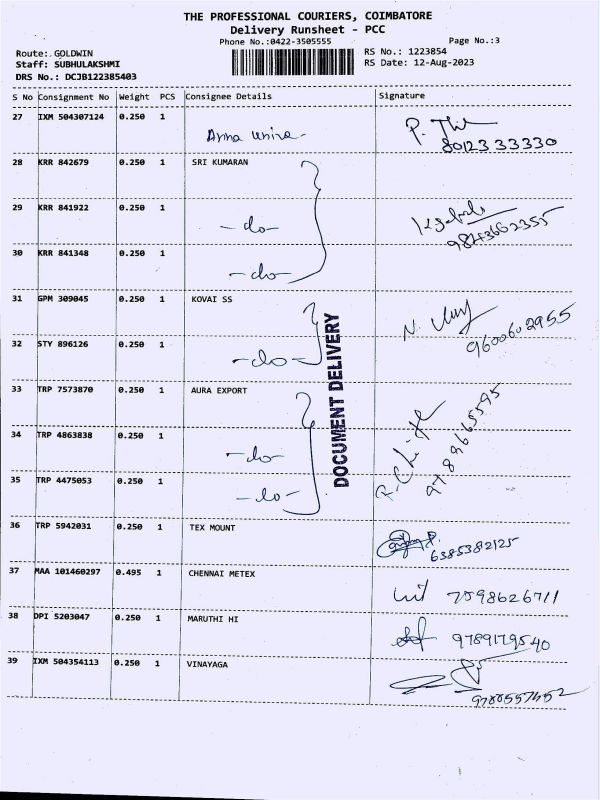 THE PROFESSIONAL COURIERS, COIMBATORE
Delivery Runsheet - PCC
Phone No.:0422-3505555 Page No.:3
Route: GOLDWIN RS No.: 1223854
Staff: SUBHULAKSHMI RS Date: 12-Aug-2023
DRS No.: DCJB122385403
S No Consignment No Weight PCS Consignee Details Signature
27 IXM 504307124 0.250 1 Anna
80123 33330
28 KRR 842679 0.250 1 SRI KUMARAN
29 KRR 841922 0.250 1 -do-
9843662355
30 KRR 841348 0.250 1 -do-
31 GPM 309045 0.250 1 KOVAI SS
N.
9600602955
32 STY 896126 0.250 1 -do-
DOCUMENT DELIVERY
33 TRP 7573870 0.250 1 AURA EXPORT
9789665595
34 TRP 4863838 0.250 1 -do-
35 TRP 4475053 0.250 1 -do-
36 TRP 5942031 0.250 1 TEX MOUNT
6385382125
37 MAA 101460297 0.495 1 CHENNAI METEX 7598626711
38 DPI 5203047 0.250 1 MARUTHI HI 9789179540
39 IXM 504354113 0.250 1 VINAYAGA